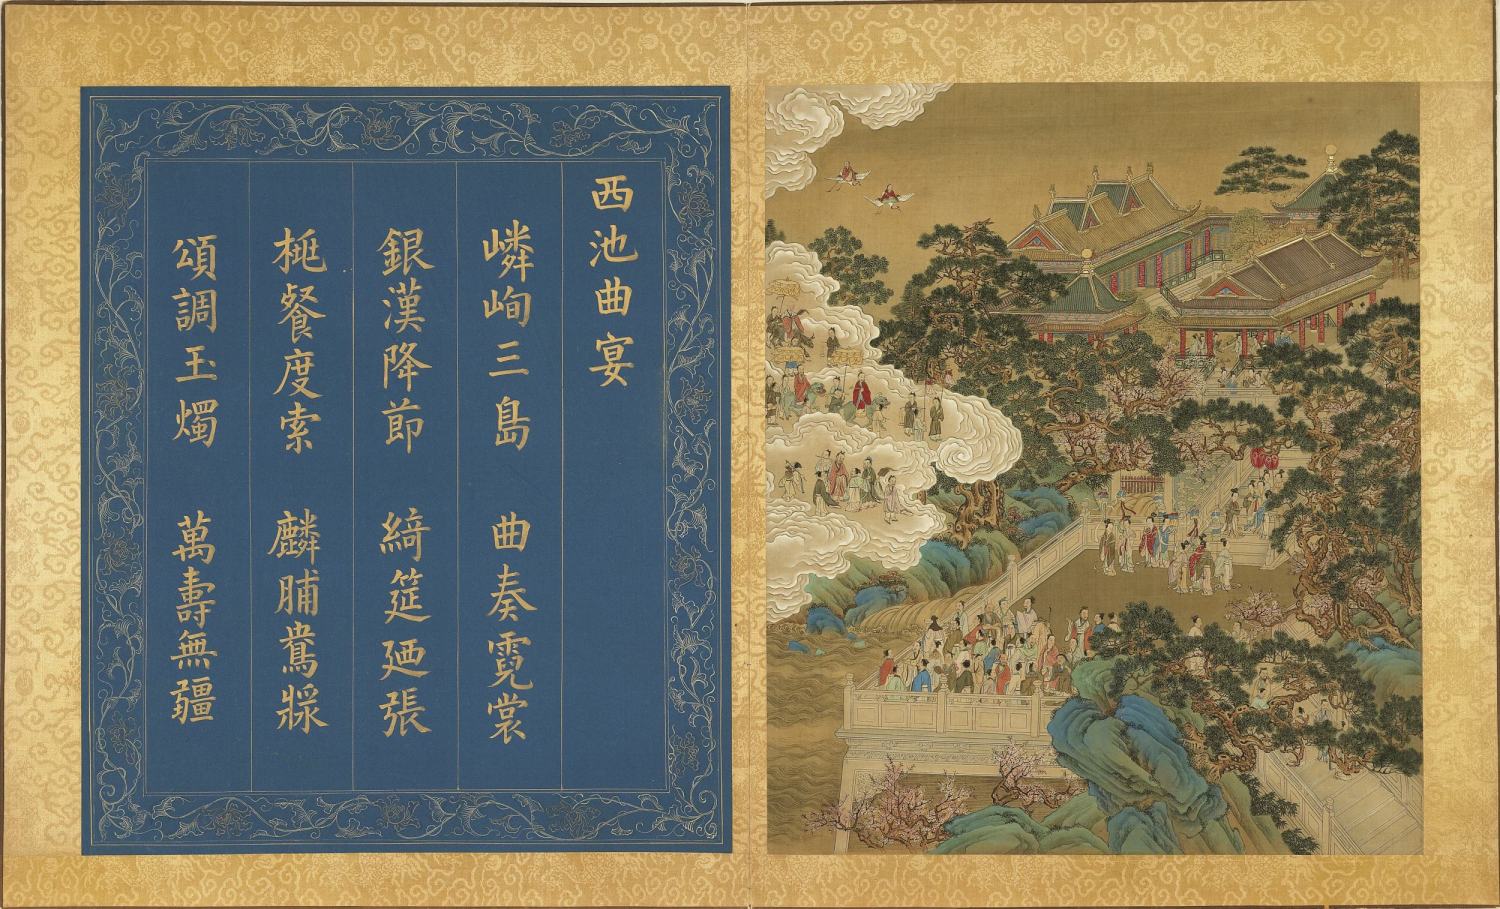 西池曲宴
嶙峋三島 曲奏霓裳
銀漢降節 綺筵廼張
桃餐度索 麟脯鴛
頌調玉燭 萬壽無疆